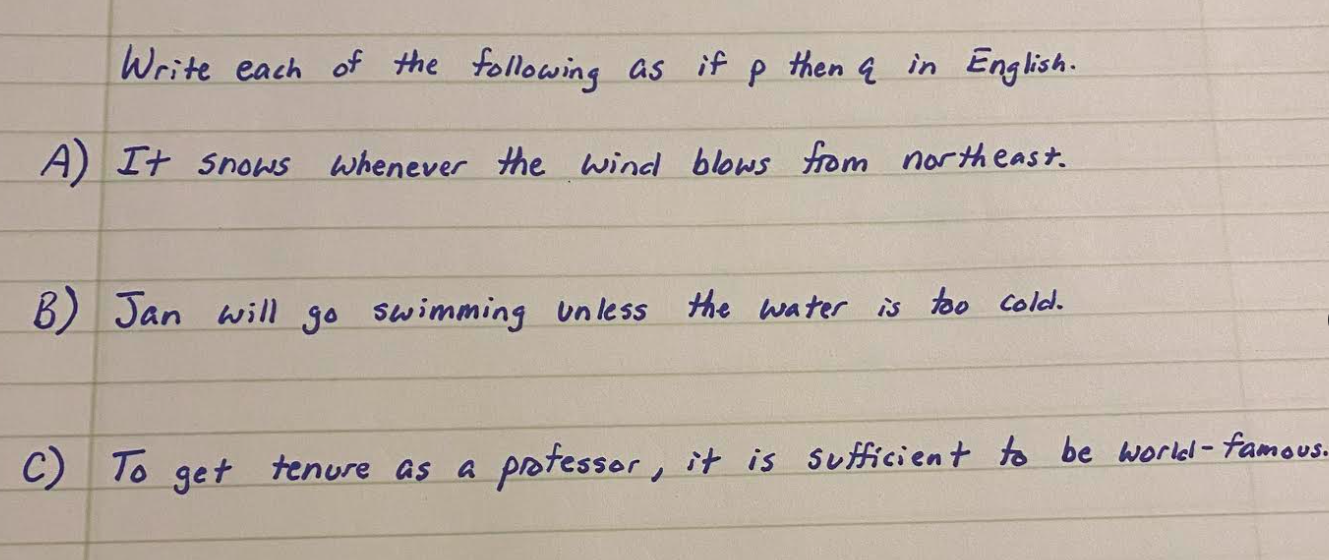 Write each of the following as if p then q in English.
A) It snows whenever the wind blows from northeast.
B) Jan will go swimming unless the water is too cold.
C) To get tenure as a professor, it is sufficient to be world-famous.